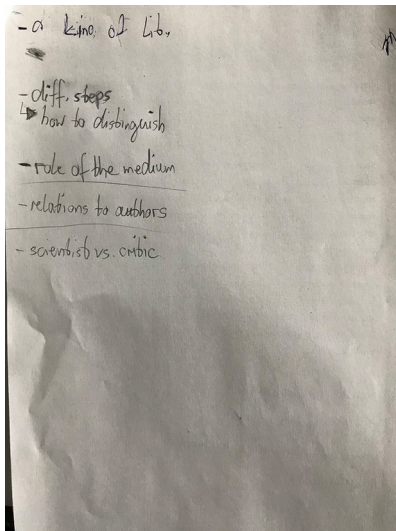 - a kind of Lit.
- diff. steps
↳ how to distinguish
- role of the medium
- relations to authors
- scientist vs. critic